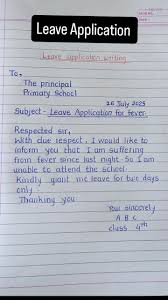 Leave Application
Leave application writing
To,
The principal
Primary School
26 July 2025
Subject - Leave Application for fever.
Respected sir,
With due respect, I would like to
inform you that I am suffering
from fever since last night. So I am
unable to attend the school.
Kindly grant me leave for two days
only.
Thanking you
Your sincerely
A B C
class 4th